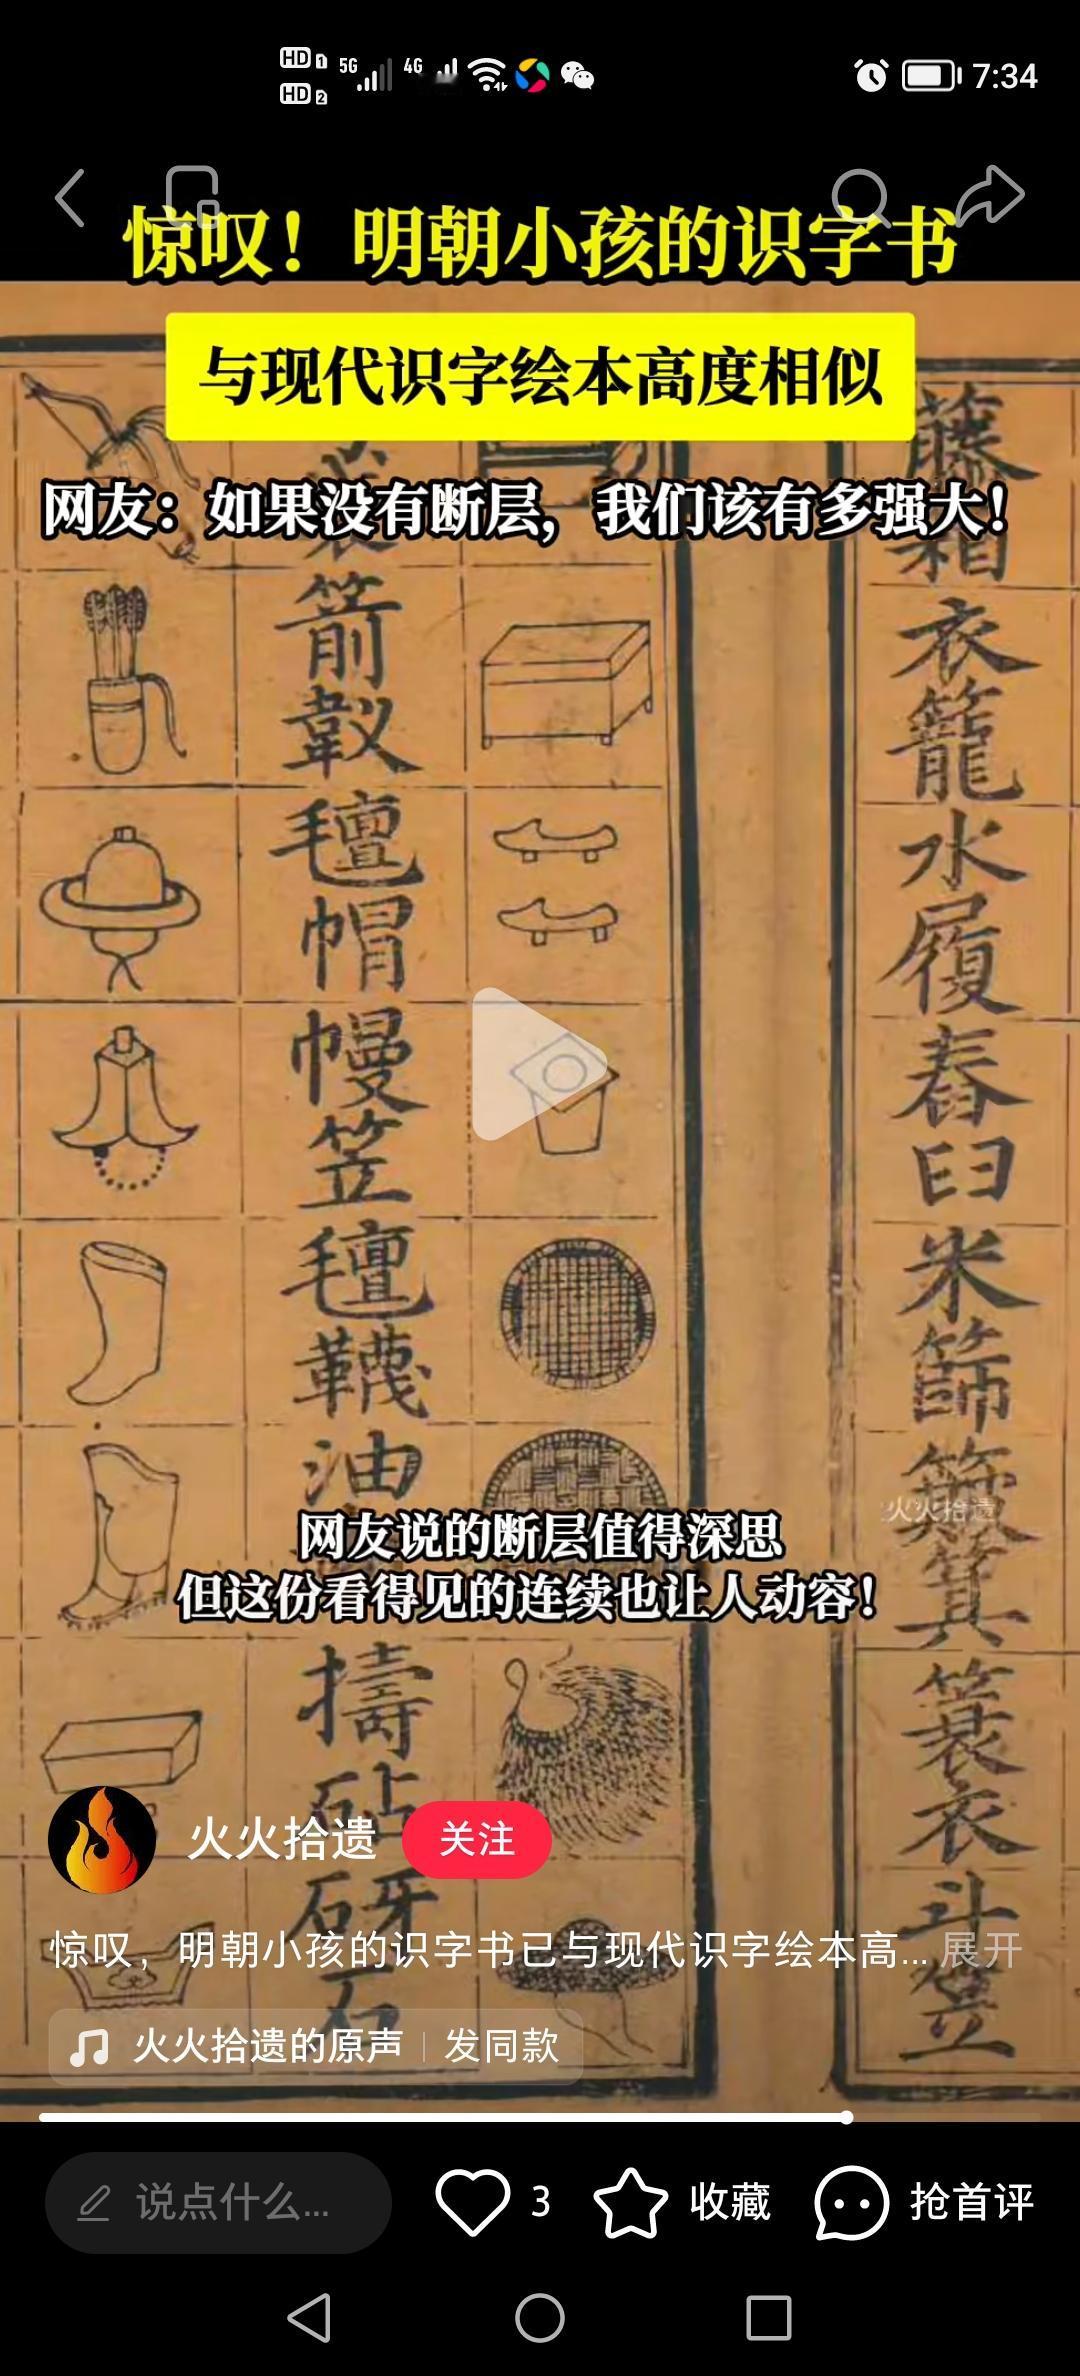 HD 1 5G 4G 7:34
HD 2
惊叹！明朝小孩的识字书
与现代识字绘本高度相似
网友：如果没有断层，我们该有多强大！
藤箱
衣籠
水履
舂臼
米篩
箕
蓑衣
斗笠
箭
氊帽
幔笠
氊韈
油
擣砧
砑石
火火拾遗
网友说的断层值得深思
但这份看得见的连续也让人动容！
火火拾遗 关注
惊叹，明朝小孩的识字书已与现代识字绘本高... 展开
火火拾遗的原声 | 发同款
说点什么... 3 收藏 抢首评